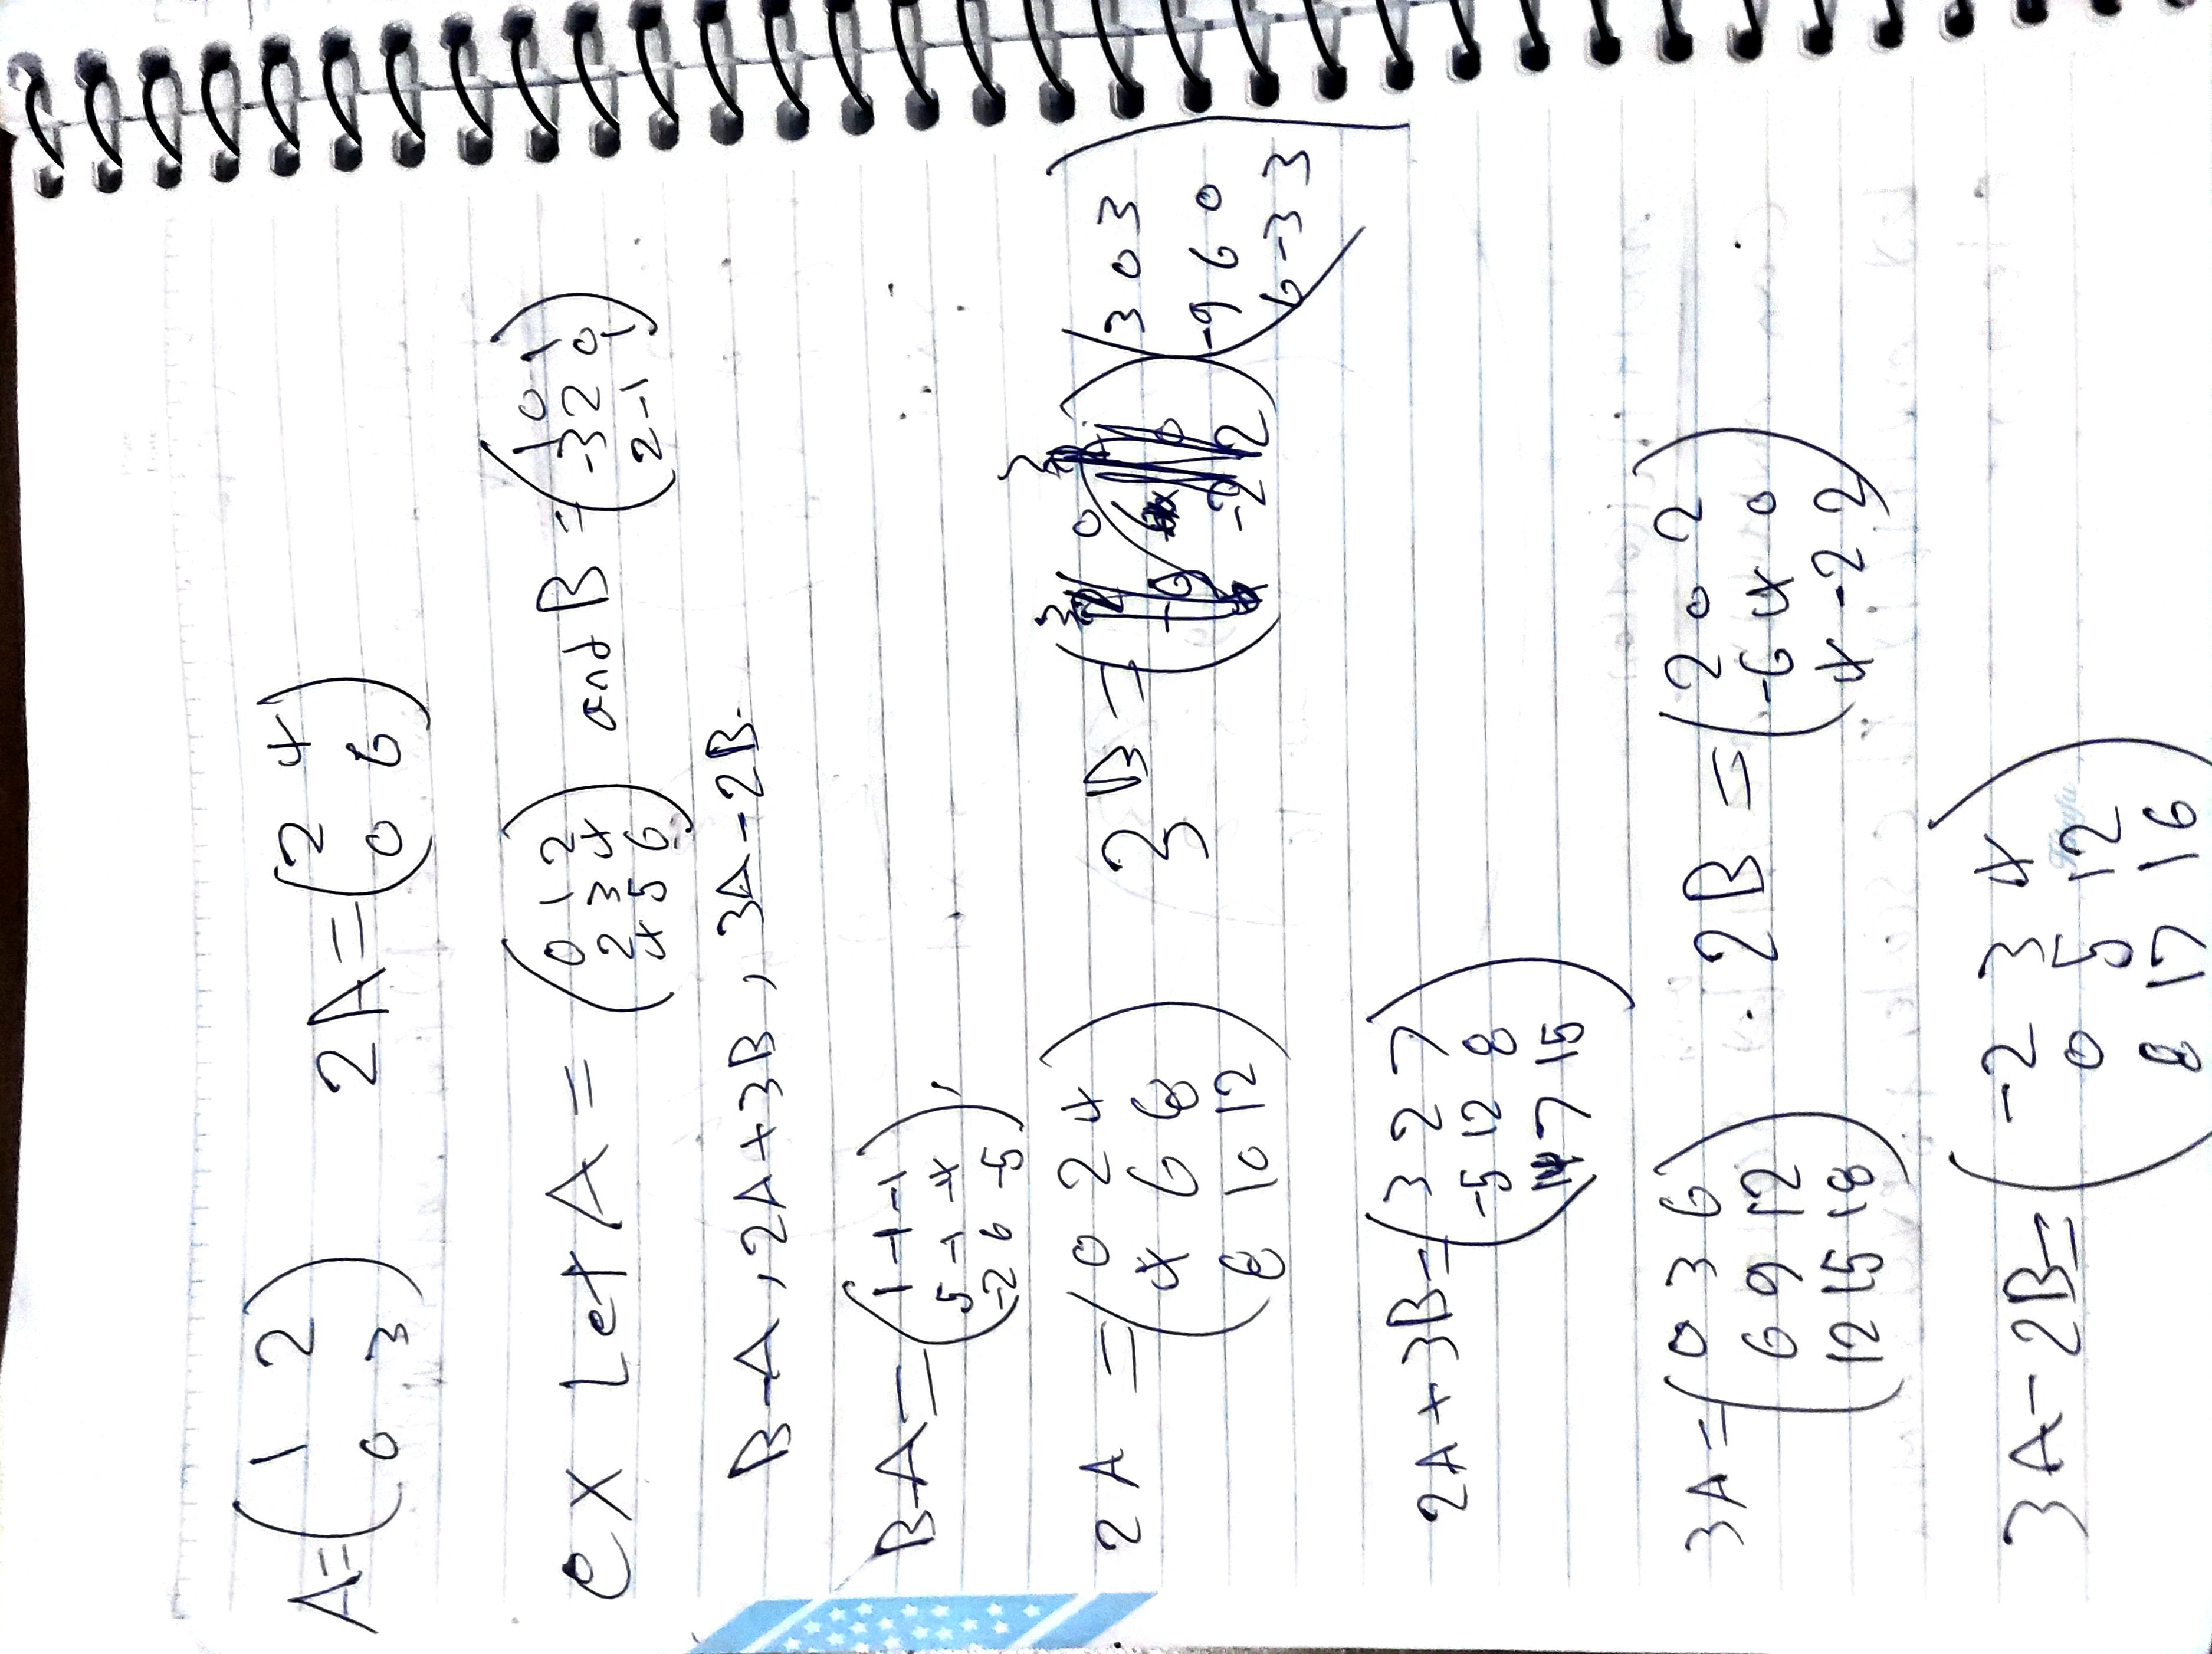 A=(1 2
0 3) 2A=(2 4
0 6)
ex Let A = (0 1 2
2 3 4
4 5 6) and B = (1 0 1
-3 2 0
2 -1 1)
B-A, 2A+3B, 3A-2B.
B-A= (1 -1 -1
5 -1 -4
-2 6 -5),
2A = (0 2 4
4 6 8
8 10 12) 3B = (3 0 3
-9 6 0
6 -3 3)
2A+3B= (3 2 7
-5 12 8
14 7 15)
3A= (0 3 6
6 9 12
12 15 18) 2B = (2 0 2
-6 4 0
4 -2 2)
3A-2B= (-2 3 4
0 5 12
8 17 16)